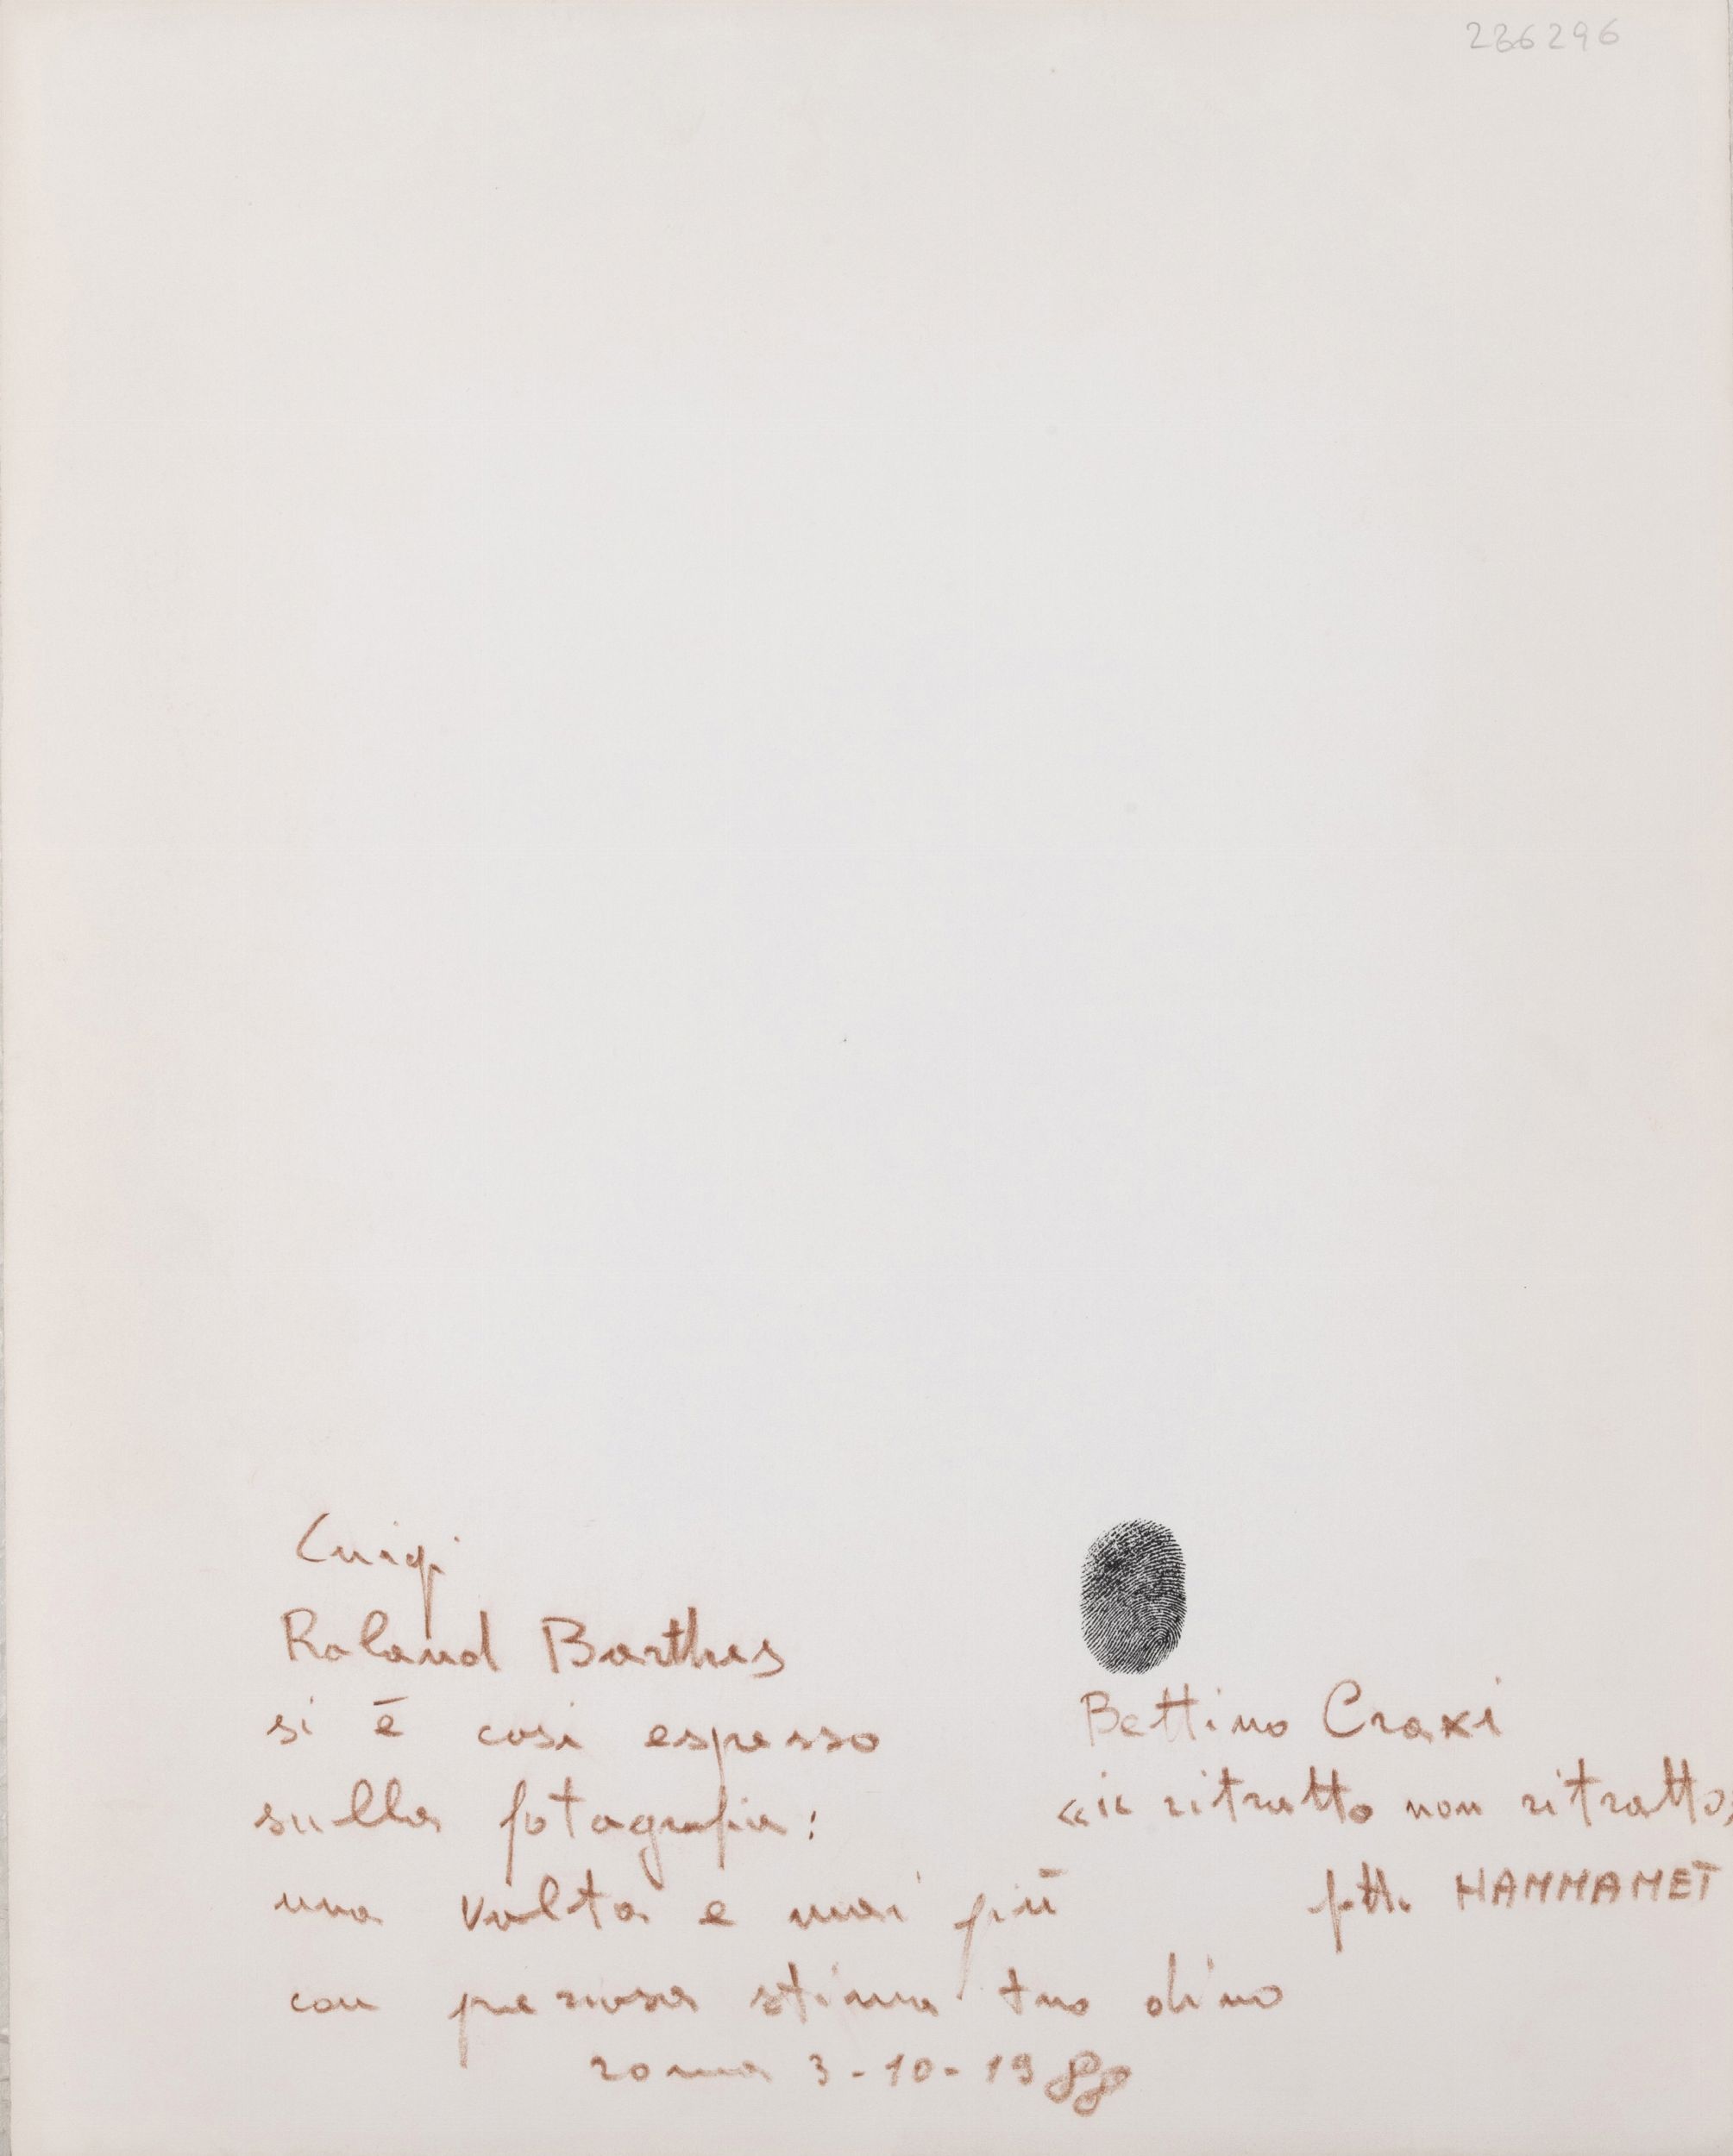 236296
Luigi
Roland Barthes
si è cosi espresso
sulla fotografia:
una volta e mai più
con preziosa stima tuo dino
roma
Bettino Craxi
«il ritratto non ritratto»
HAMMAMET